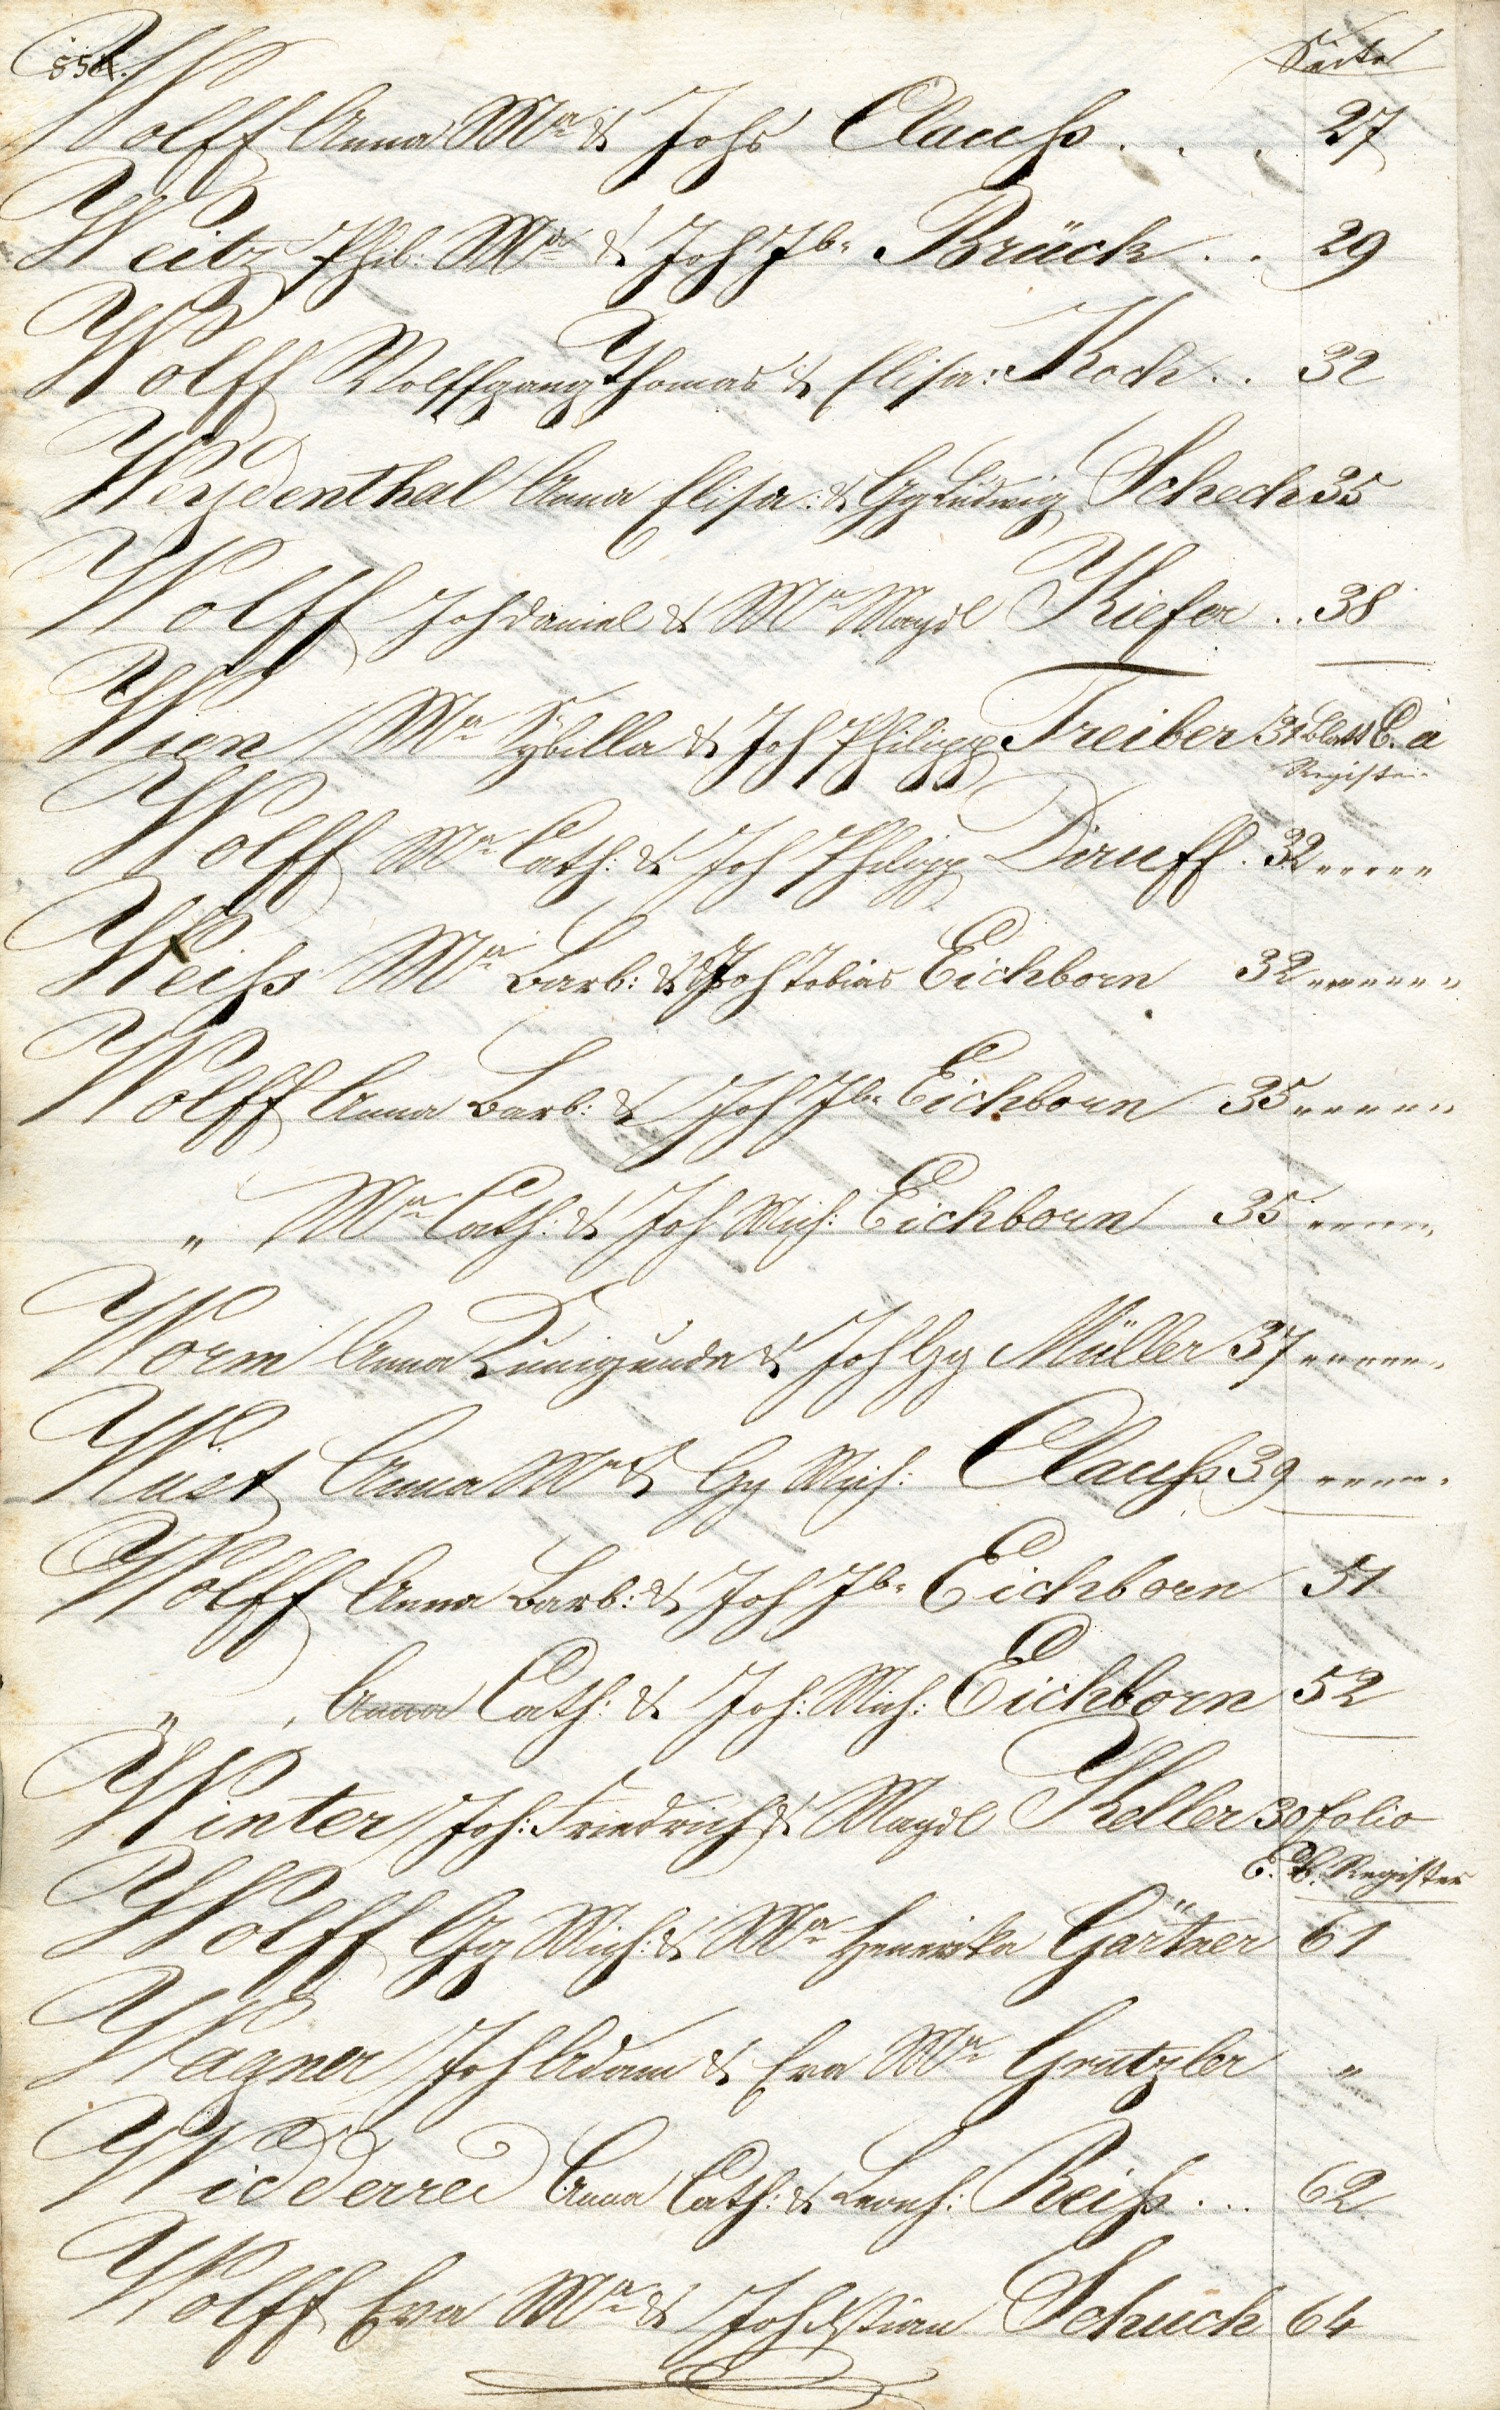 85
Seite
Wolff Anna Ma & Johs Clauß . . . 27
Weitz Phil: Ma & Joh Jb. Brück . . 29
Wolff Wolffgang Thomas & Elisa: Koch . . 32
Weydenthal Anna Elisa: & Gg Ludwig Scheck 35
Wolff Joh Daniel & Ma Magdl Kiefer . . 38
Wien Ma Sybilla & Joh Philipp Treiber 31 Blatt C. a
Register
Wolff Ma Cath: & Joh Philipp Diruff . 32 " " " " "
Weiß Ma Barb: & Joh Tobias Eichborn 32 " " " " " "
Wolff Anna Barb: & Joh Jb. Eichborn 35 " " " " " "
" Ma Cath: & Joh Mich: Eichborn 35 " " " " "
Worm Anna Kunigunda & Joh Gg Müller 37 " " " " " "
Wust Anna Ma & Gg Mich: Clauß 39 " " " " "
Wolff Anna Barb: & Joh Jb. Eichborn 51
" , Anna Cath: & Joh: Mich: Eichborn 52
Winter Joh: Friedrich & Magdl Keller 30 folio
C. b. Register
Wolff Gg Mich: & Ma Henrika Gärtner 61
Wagner Joh Adam & Eva Ma Grutzler "
Widderred Anna Cath: & Leonh: Reiß . . . 62
Wolff Eva Ma & Joh Schuck 64